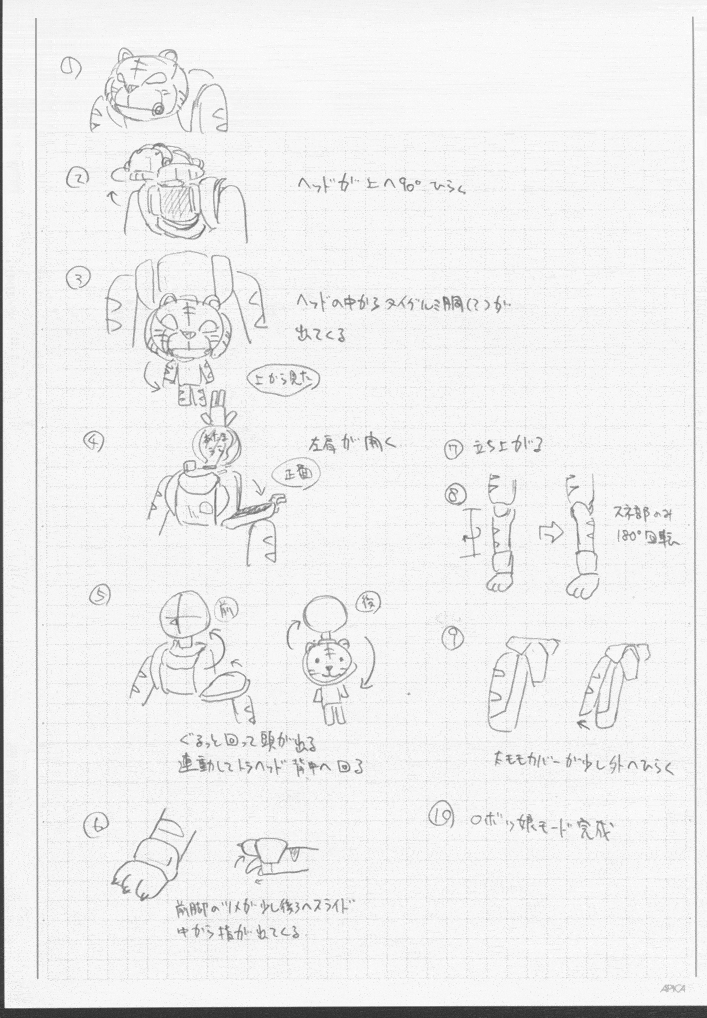 ①
②
ヘッドが 上へ90° ひらく
③
ヘッドの中から タイグルミ胴(?)が
出てくる
上から見た
④
左肩が 開く
正面
⑤
前
後
ぐるっと回って頭が出る
連動してトラヘッド 背中へ 回る
⑥
前脚のツメが少し後ろへスライド
中から指が出てくる
⑦ 立ち上がる
⑧
スネ部のみ
180°回転
⑨
太モモカバーが少し外へひらく
⑩ ロボッ娘モード 完成
APICA